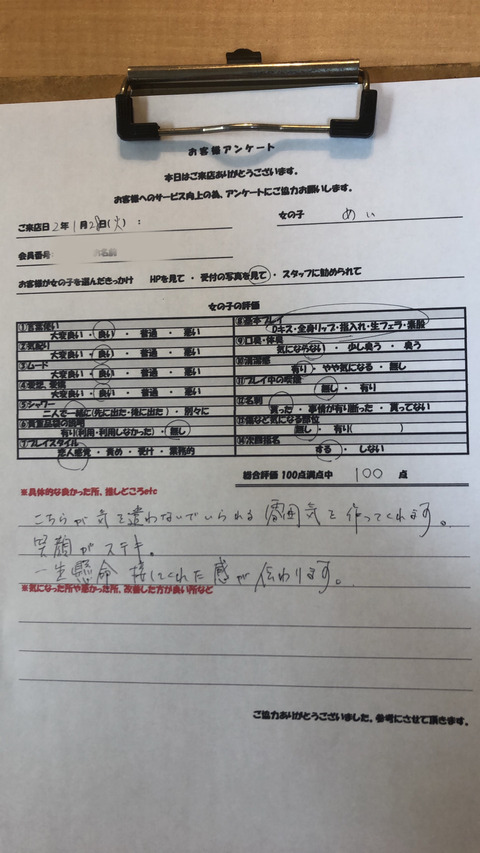 お客様アンケート
本日はご来店ありがとうございます。
お客様へのサービス向上の為、アンケートにご協力お願いします。
ご来店日 2年 1月 28日(火) :
女の子 めい
会員番号
お名前
お客様が女の子を選んだきっかけ HPを見て ・ 受付の写真を見て ・ スタッフに勧められて
女の子の評価
①言葉使い
大変良い ・ 良い ・ 普通 ・ 悪い
②気配り
大変良い ・ 良い ・ 普通 ・ 悪い
③ムード
大変良い ・ 良い ・ 普通 ・ 悪い
④愛想、愛嬌
大変良い ・ 良い ・ 普通 ・ 悪い
⑤シャワー
二人で一緒に(先に出た・後に出た) ・ 別々に
⑥貴重品袋の説明
有り(利用・利用しなかった) ・ 無し
⑦プレイスタイル
恋人感覚 ・ 責め ・ 受け ・ 業務的
⑧基本プレイ
Dキス・全身リップ・指入れ・生フェラ・素股
⑨口臭・体臭
気にならない ・ 少し臭う ・ 臭う
⑩清潔感
有り ・ やや気になる ・ 無し
⑪プレイ中の喫煙
無し ・ 有り
⑫名刺
貰った ・ 事情が有り断った ・ 貰ってない
⑬傷など気になる部位
無し ・ 有り( )
⑭次回指名
する ・ しない
総合評価 100点満点中 100 点
※具体的な良かった所、推しどころetc
こちらが気を遣わないでいられる雰囲気を作ってくれます。
笑顔がステキ。
一生懸命接してくれた感が伝わります。
※気になった所や悪かった所、改善した方が良い所など
ご協力ありがとうございました。参考にさせて頂きます。